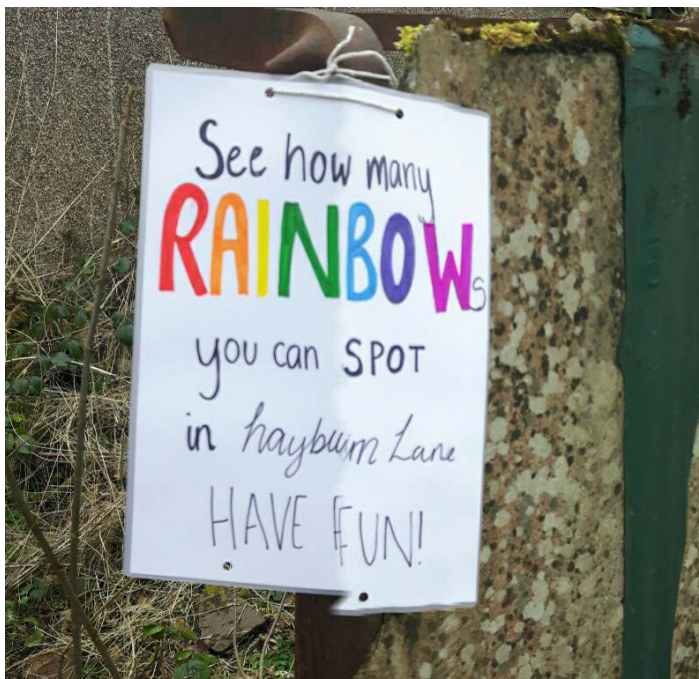 See how many
RAINBOWs
you can SPOT
in hayburn Lane
HAVE FUN!